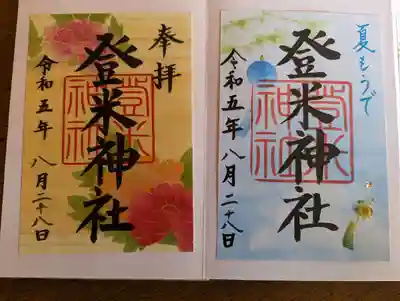 奉拝
登米神社
登米神社
令和五年 八月二十八日
夏もうで
登米神社
登米神社
令和五年 八月二十八日